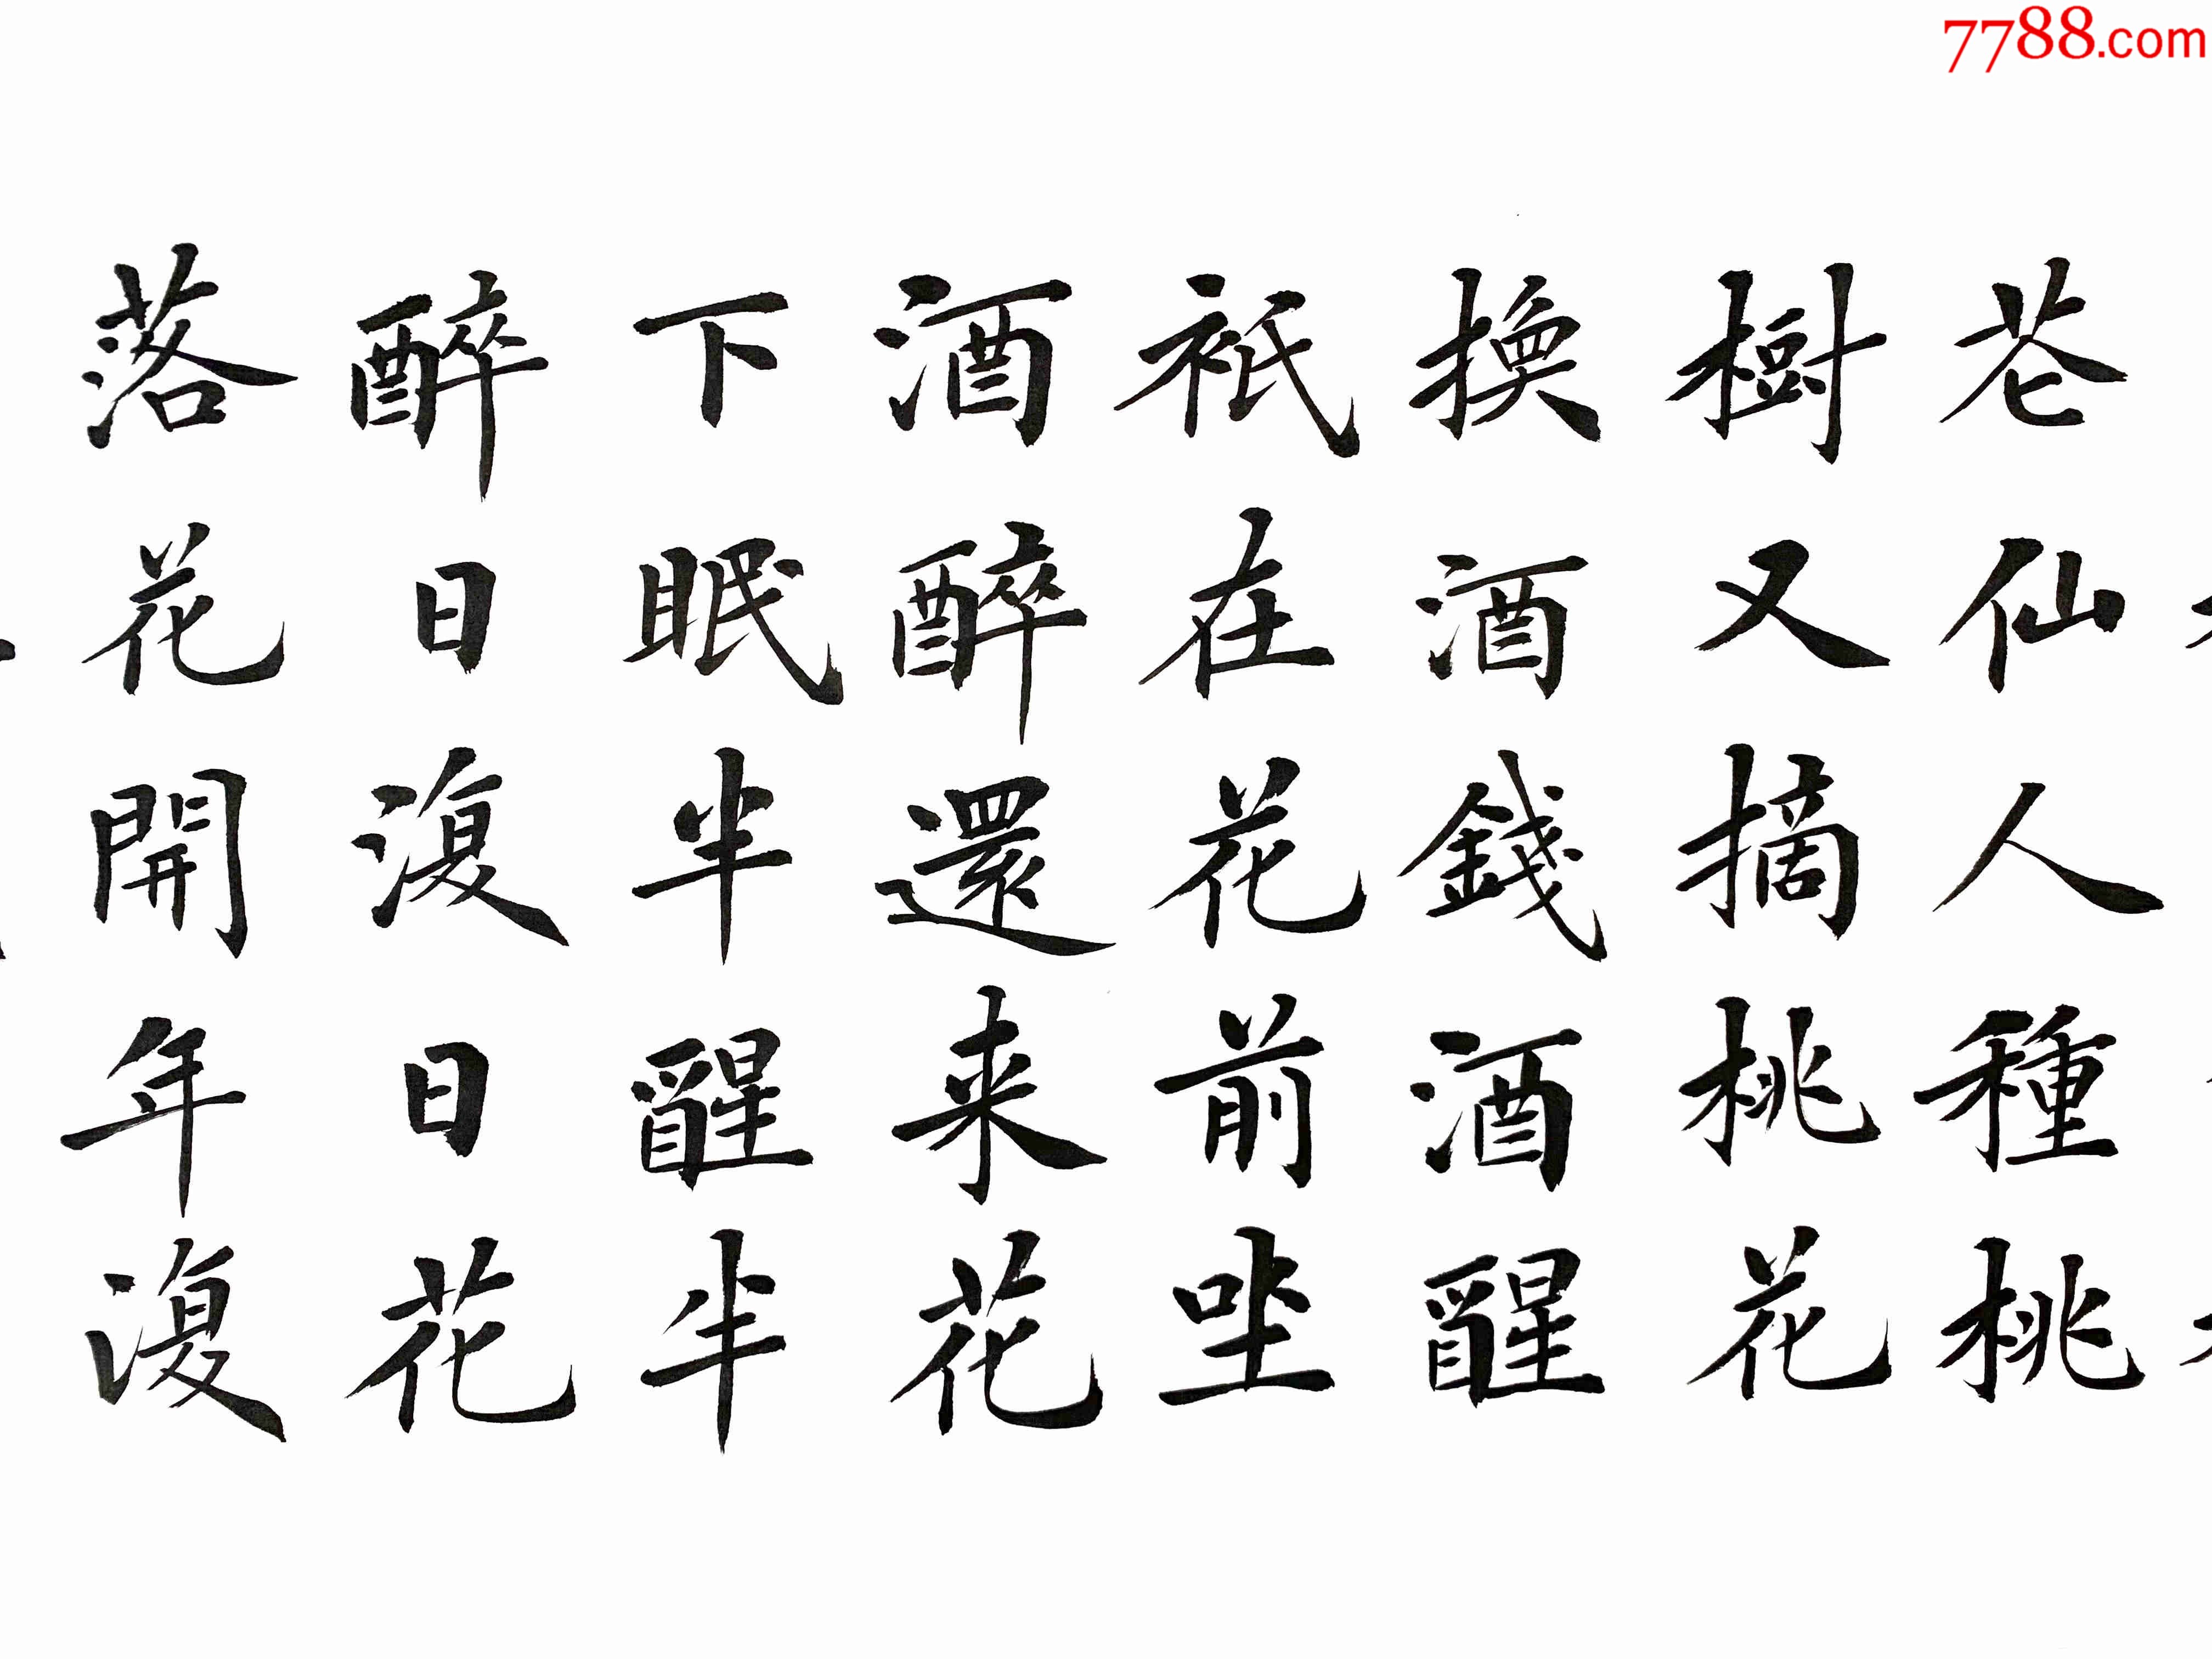 7788.com
花仙人種桃
樹又摘桃花
換酒錢酒醒
祇在花前坐
酒醉還来花
下眠半醒半
醉日復日花
落花開年復